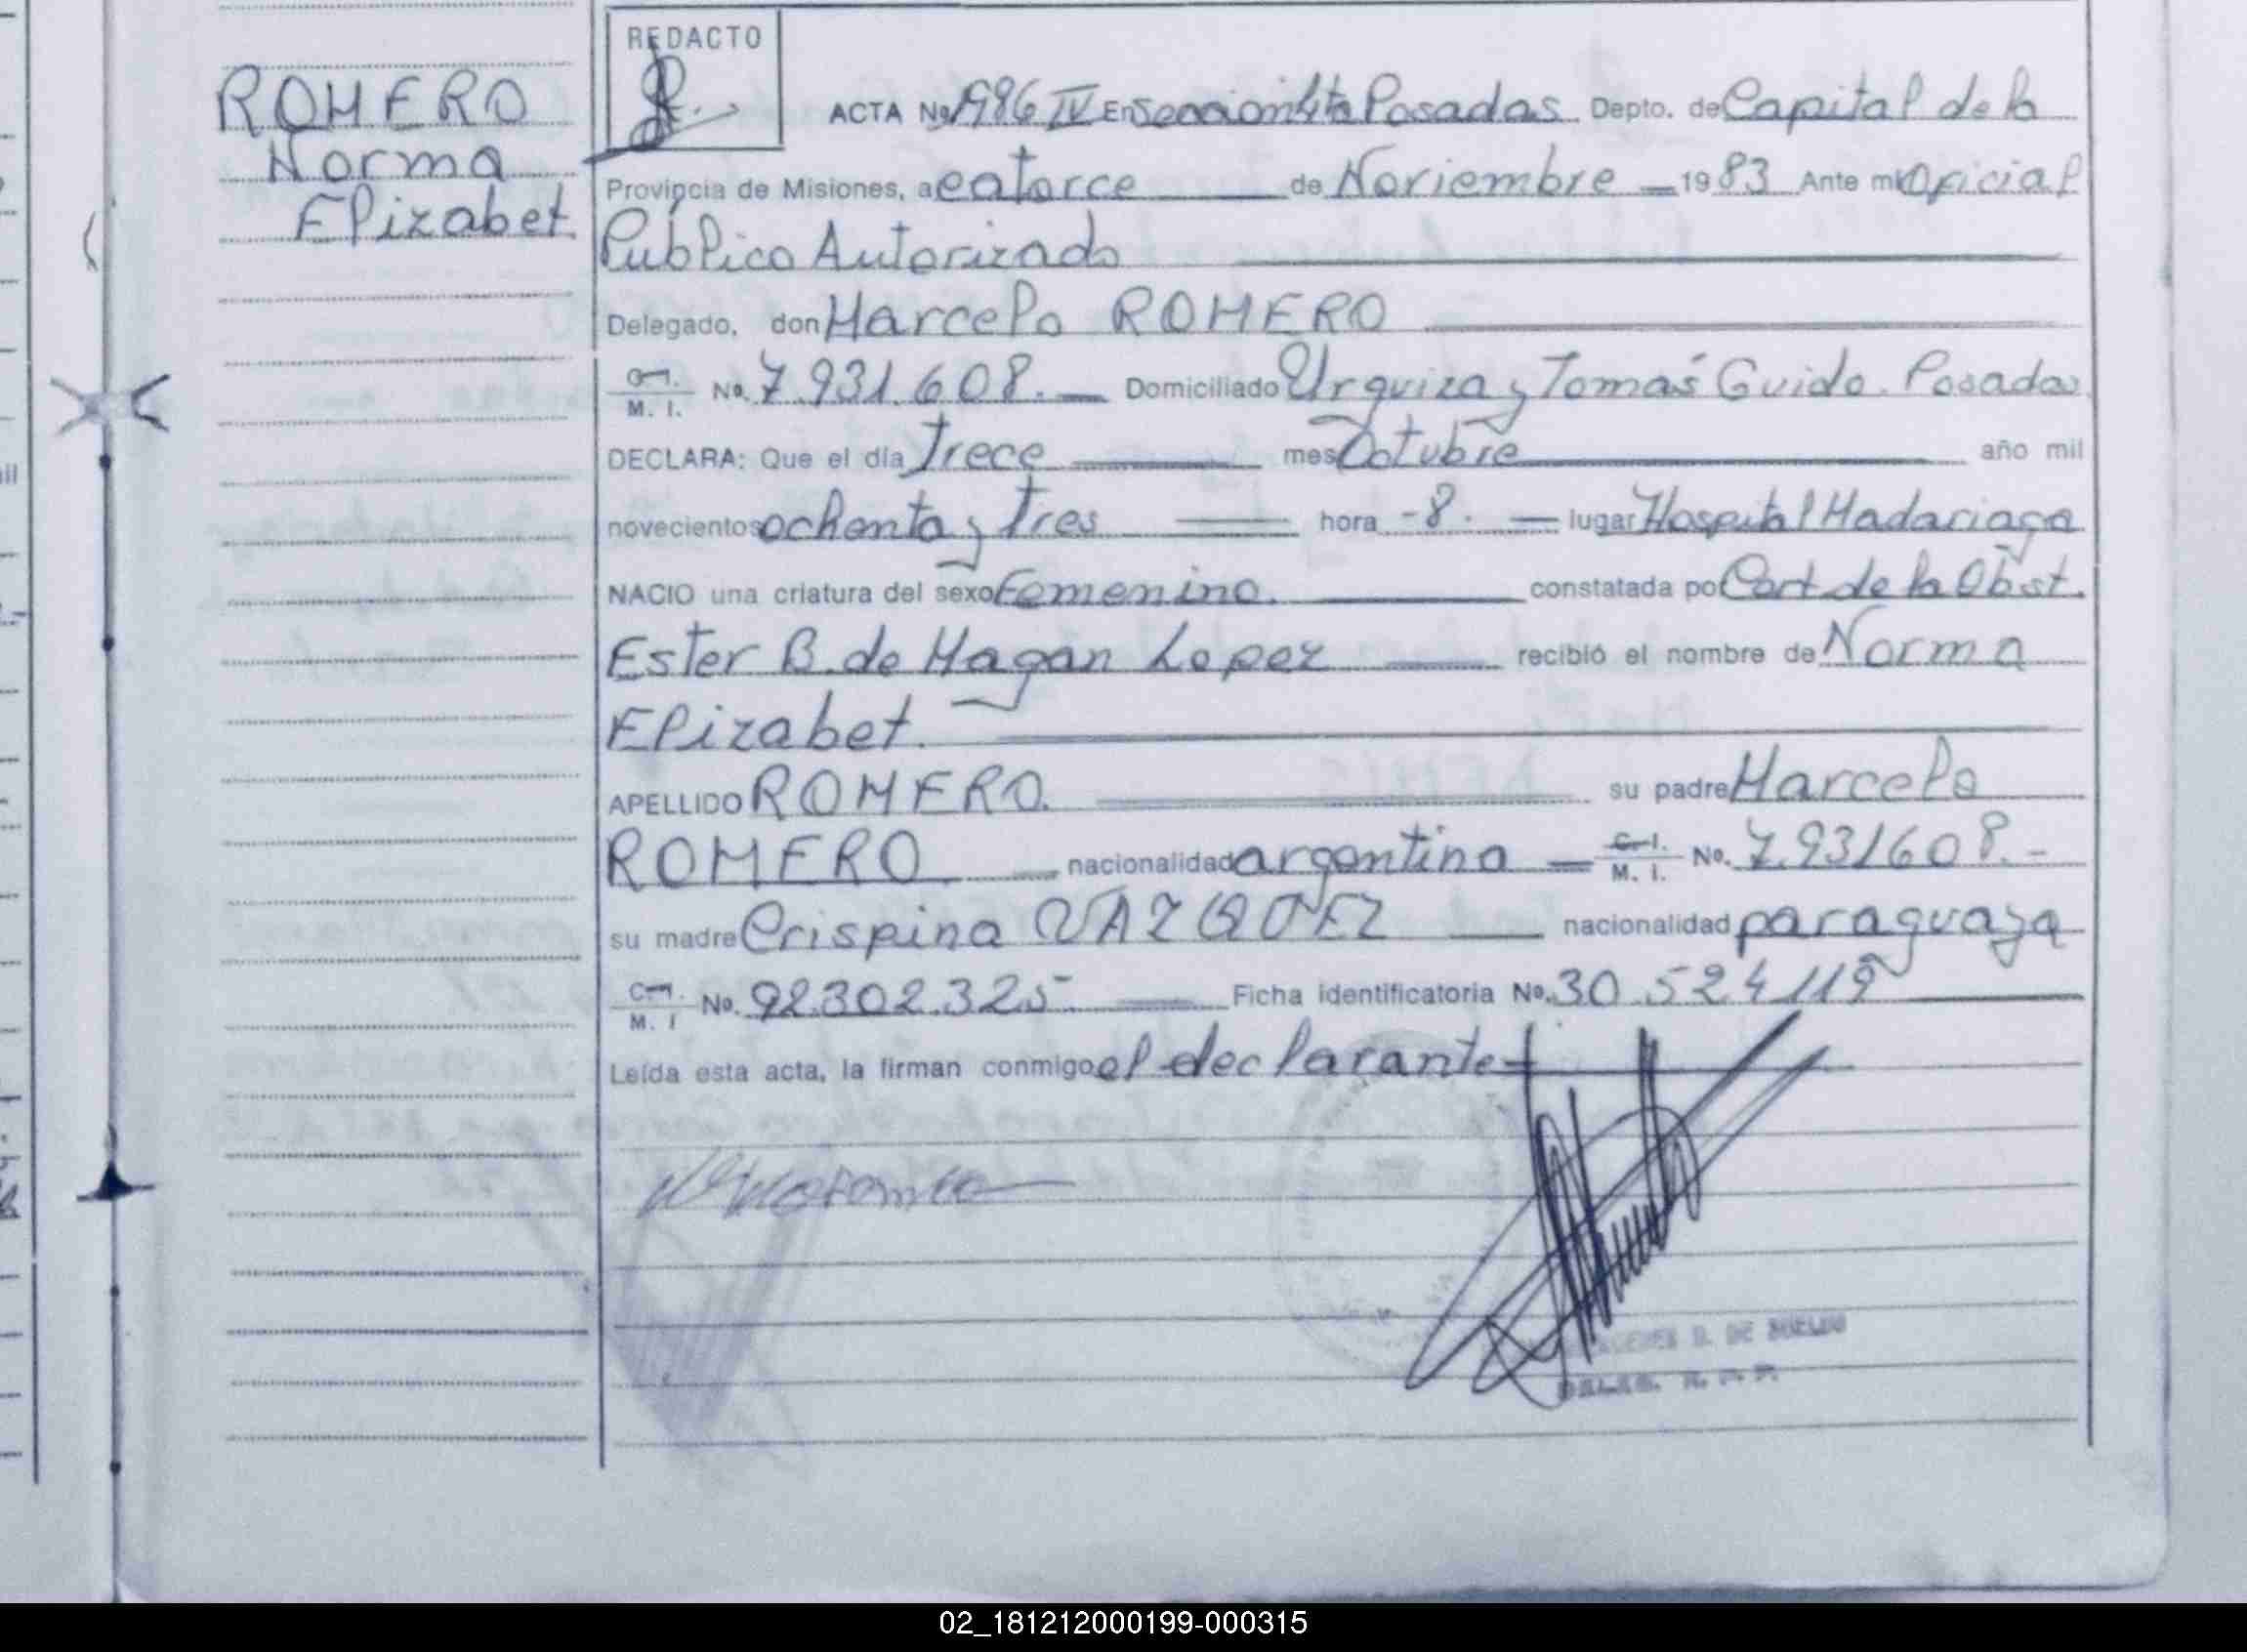 REDACTO
ROMERO
Norma
Elizabet
ACTA No 1986 IV En seccion 4ta Posadas Depto. de Capital de la
Provincia de Misiones, a catorce de Noviembre 1983 Ante mi Oficial
Publico Autorizado
Delegado, don Marcelo ROMERO
C.I. M. I. No. 7.931.608. Domiciliado Urquiza y Tomás Guido. Posadas
DECLARA: Que el día Trece mes Octubre año mil
novecientos ochenta y tres hora -8. lugar Hospital Madariaga
NACIO una criatura del sexo Femenino. constatada por Cert de la Obst.
Ester B. de Magan Lopez recibió el nombre de Norma
Elizabet.
APELLIDO ROMERO. su padre Marcelo
ROMERO nacionalidad argentina C.I. M. I. No. 7.931608.-
su madre Crispina VAZQUEZ nacionalidad paraguaya
C.I. M. I No. 92.302.325 Ficha identificatoria No. 30.524119
Leída esta acta, la firman conmigo el declarante
D. DE
02_181212000199-000315